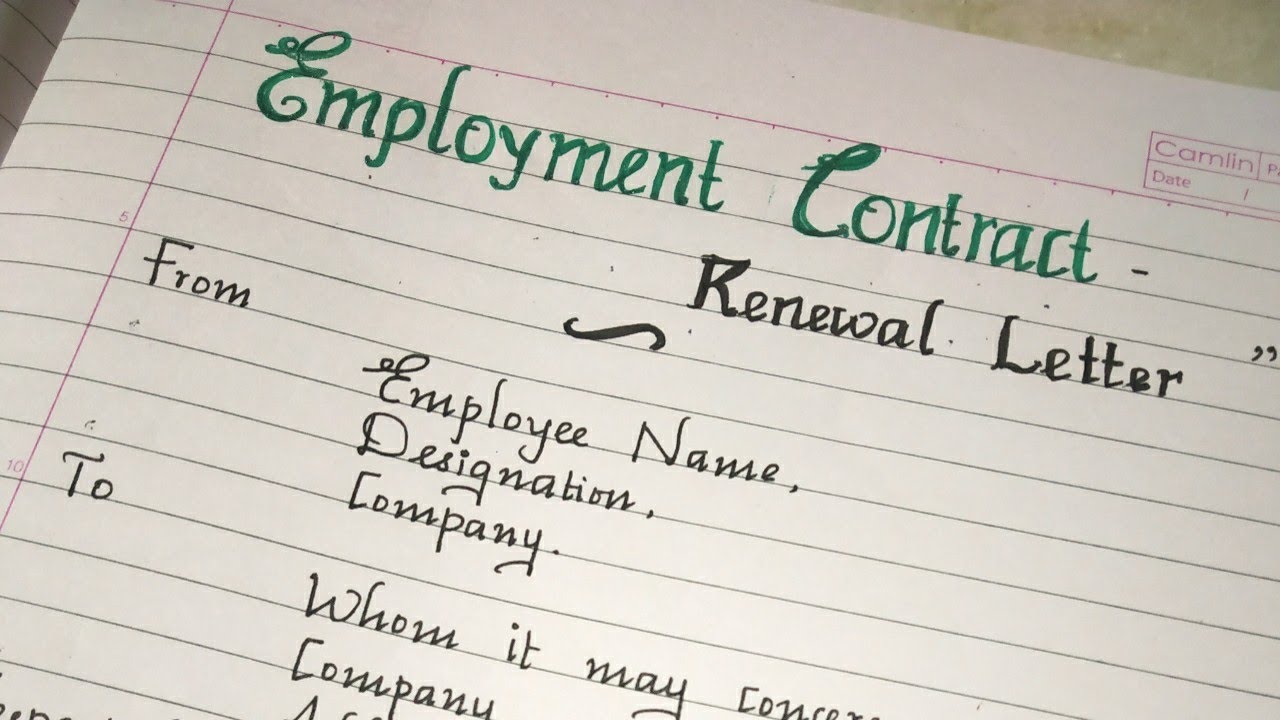 Employment Contract -
Camlin
Date /
Renewal Letter ”
5
From
Employee Name,
Designation,
Company.
10
To
Whom it may
Company